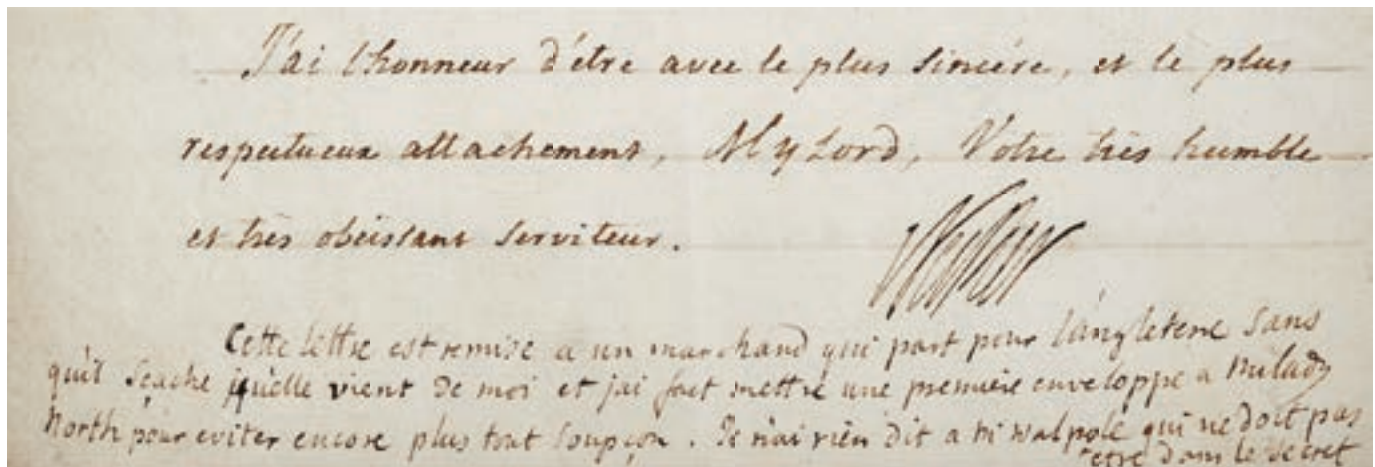 J'ai l'honneur d'être avec le plus sincére, et le plus
respectueux attachement, My Lord, Votre très humble
et très obeissant Serviteur.
Cette lettre est remise a un marchand qui part pour l'angleterre sans
qu'il sçache qu'elle vient de moi et jai fait mettre une premiere enveloppe a Milady
North pour eviter encore plus tout soupçon. Je n'ai rien dit a Mr Walpole qui ne doit pas
etre dans le secret